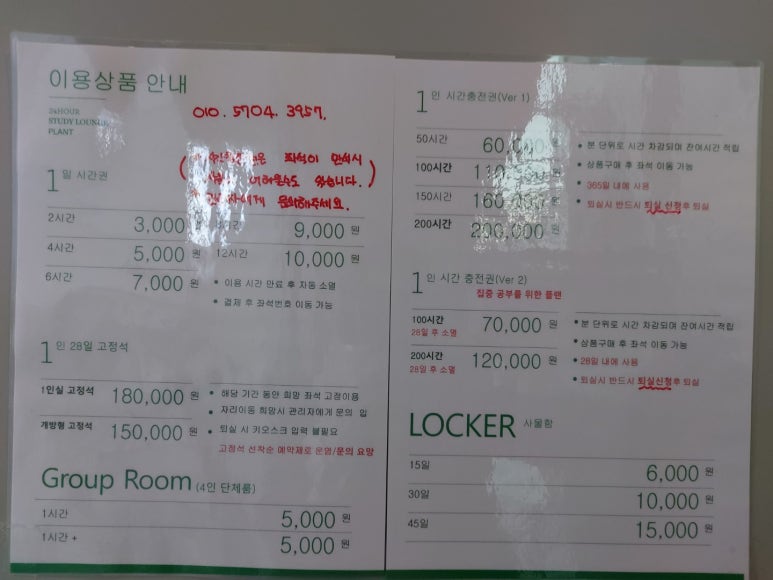 이용상품 안내
24HOUR
STUDY LOUNGE
PLANT
010. 5704. 3957.
좌석이 만석시
어려울수도 있습니다.
문의해주세요.
1일 시간권
2시간 3,000 원
4시간 5,000 원
6시간 7,000 원
9,000 원
12시간 10,000 원
• 이용 시간 만료 후 자동 소멸
• 결제 후 좌석번호 이동 가능
1인 28일 고정석
1인실 고정석 180,000 원
개방형 고정석 150,000 원
• 해당 기간 동안 희망 좌석 고정이용
• 자리이동 희망시 관리자에게 문의 요
• 퇴실 시 키오스크 입력 불필요
고정석 선착순 예약제로 운영/문의 요망
Group Room (4인 단체룸)
1시간 5,000 원
1시간 + 5,000 원
1인 시간충전권(Ver 1)
50시간 60,000 원
100시간 원
150시간 160,000 원
200시간 200,000 원
• 분 단위로 시간 차감되며 잔여시간 적립
• 상품구매 후 좌석 이동 가능
• 365일 내에 사용
• 퇴실시 반드시 퇴실 신청후 퇴실
1인 시간 충전권(Ver 2)
집중 공부를 위한 플랜
100시간 70,000 원
28일 후 소멸
200시간 120,000 원
28일 후 소멸
• 분 단위로 시간 차감되며 잔여시간 적립
• 상품구매 후 좌석 이동 가능
• 28일 내에 사용
• 퇴실시 반드시 퇴실신청후 퇴실
LOCKER 사물함
15일 6,000 원
30일 10,000 원
45일 15,000 원